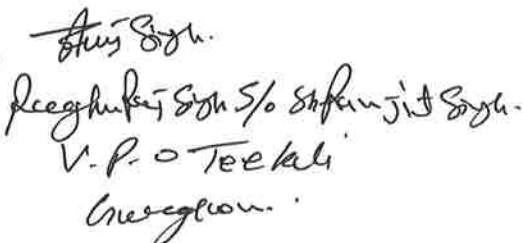 Singh.
Raeghuraj Singh S/o Sh Ranjit Singh.
V.P.O Teekli
Gurgaon.